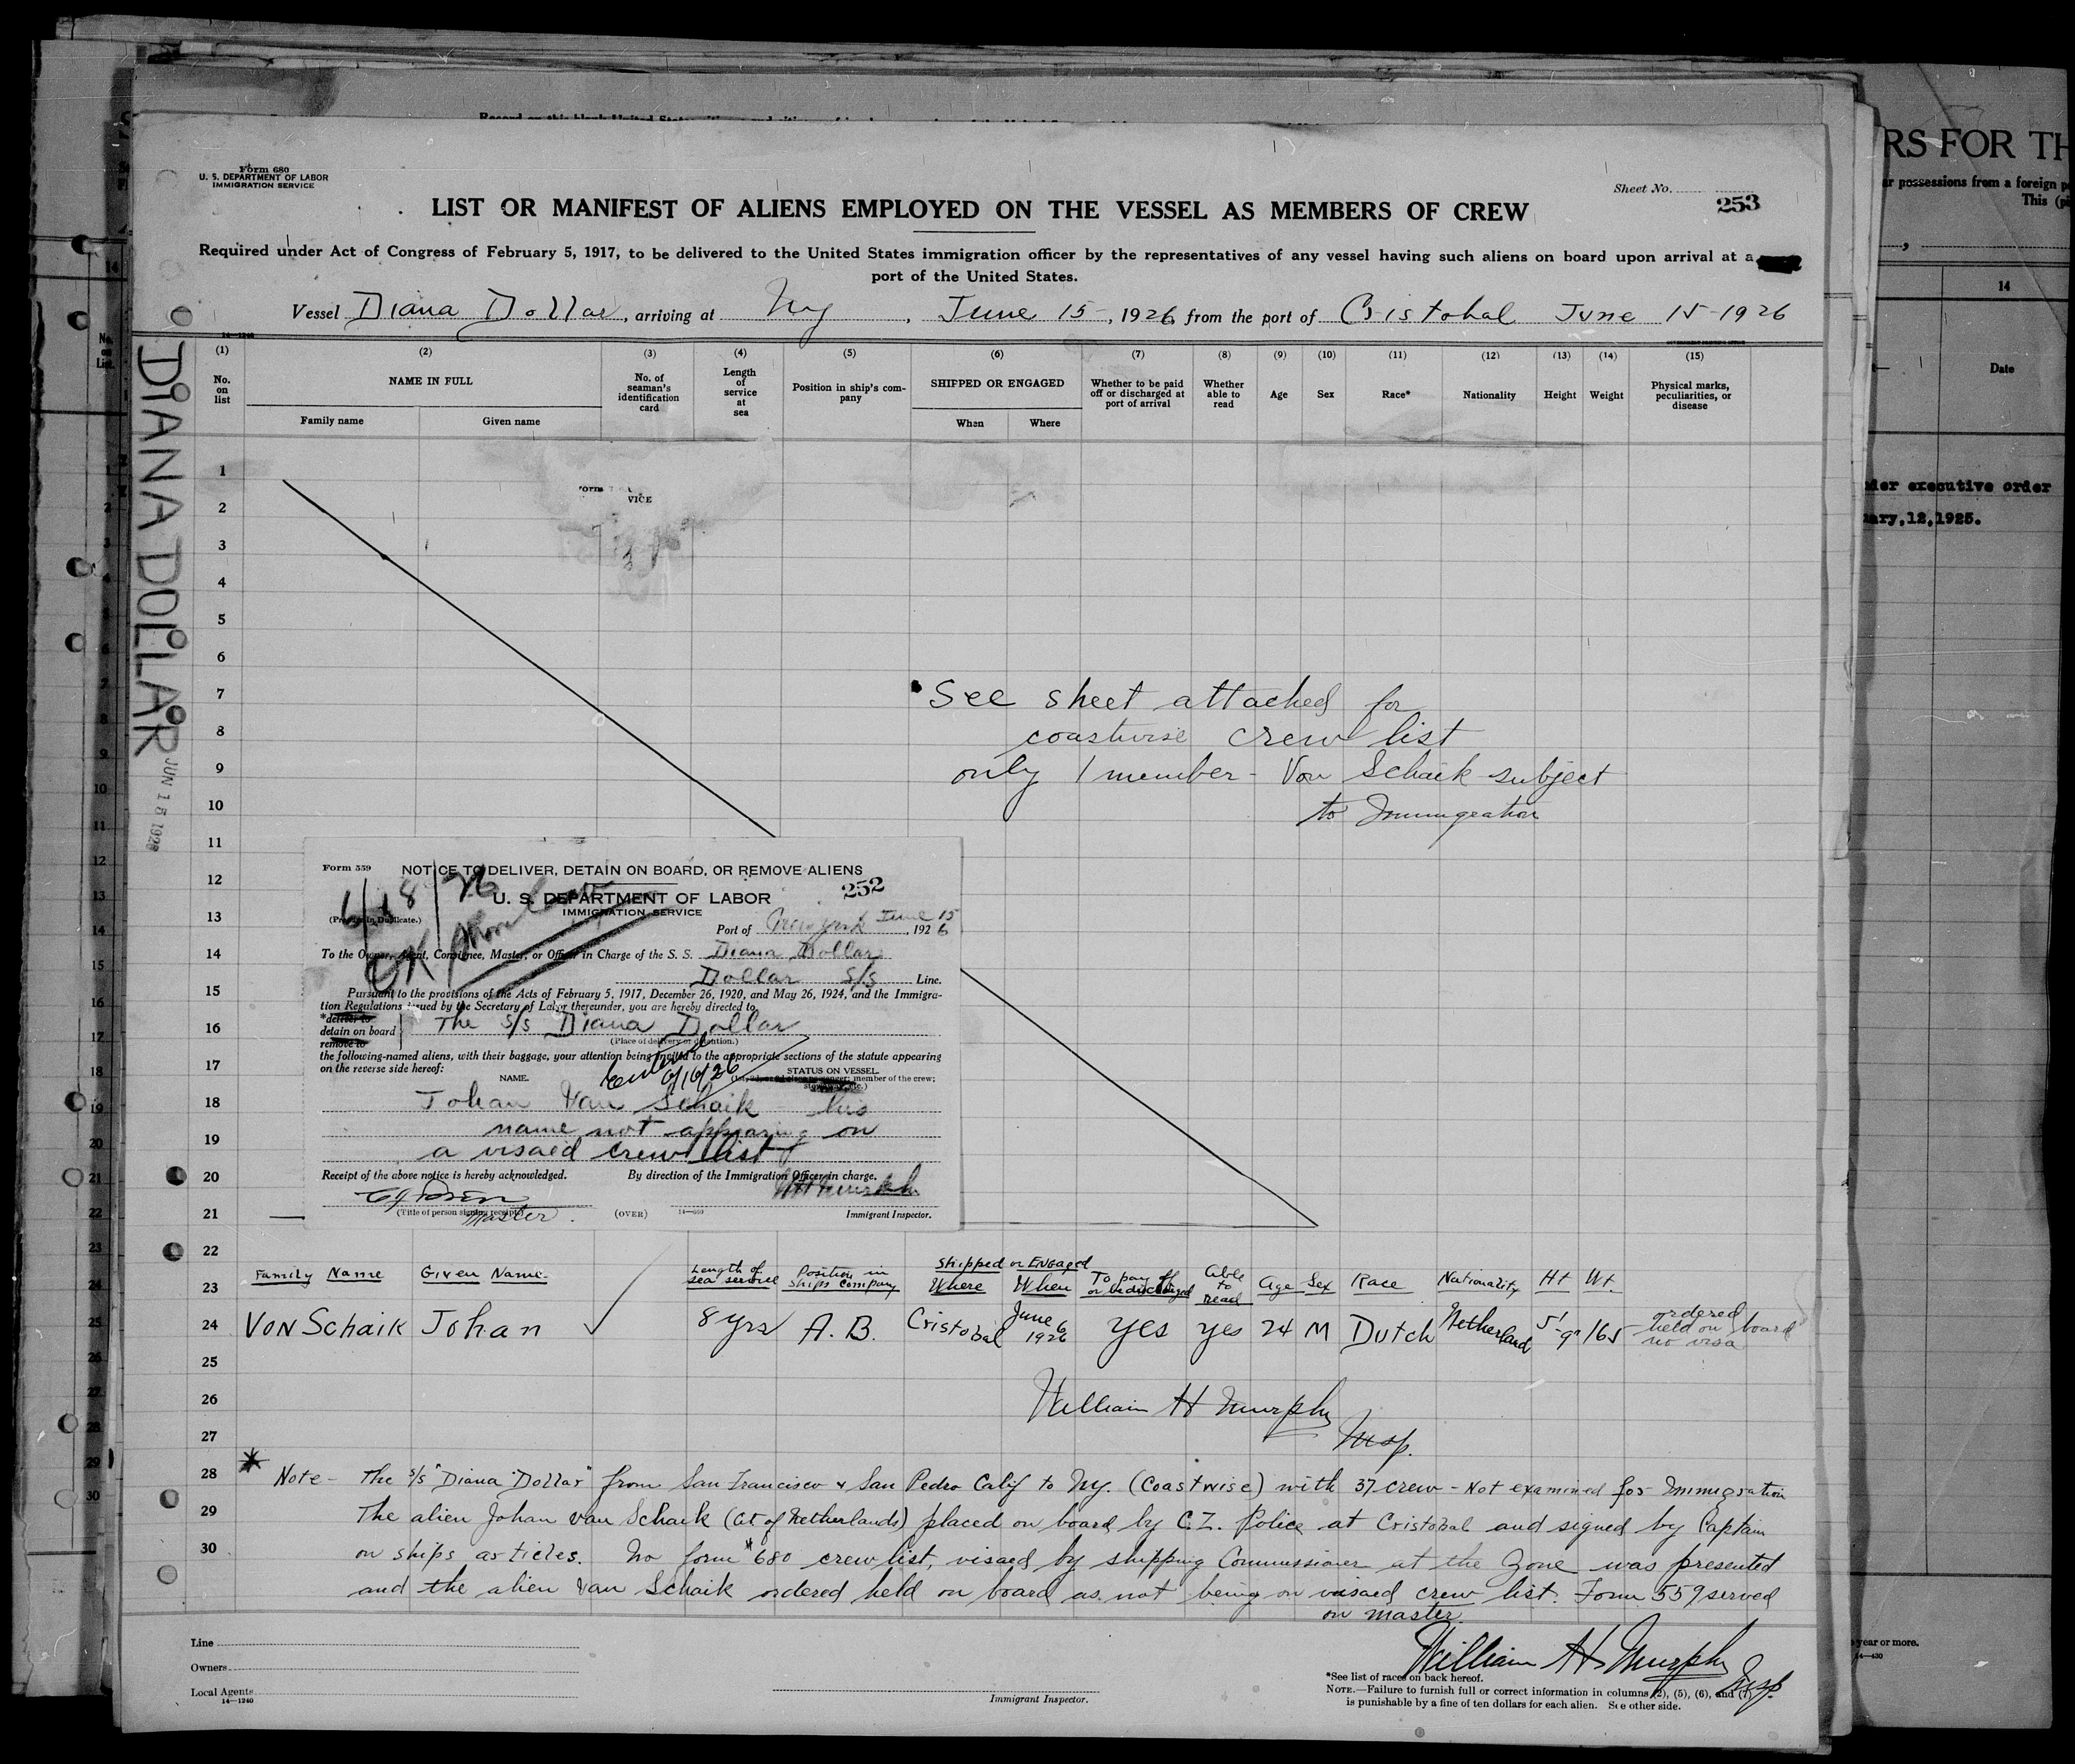 Form 680
U. S. DEPARTMENT OF LABOR
IMMIGRATION SERVICE
Sheet No.
253
LIST OR MANIFEST OF ALIENS EMPLOYED ON THE VESSEL AS MEMBERS OF CREW
Required under Act of Congress of February 5, 1917, to be delivered to the United States immigration officer by the representatives of any vessel having such aliens on board upon arrival at a
port of the United States.
Vessel Diana Dollar, arriving at Ny, June 15, 1926, from the port of Cristobal June 15-1926
14—1240
(1) (2) (3) (4) (5) (6) (7) (8) (9) (10) (11) (12) (13) (14) (15)
No. on list
NAME IN FULL
Family name
Given name
No. of seaman's identification card
Length of service at sea
Position in ship's company
SHIPPED OR ENGAGED
When
Where
Whether to be paid off or discharged at port of arrival
Whether able to read
Age
Sex
Race*
Nationality
Height
Weight
Physical marks, peculiarities, or disease
DIANA DOLLAR
JUN 15 1926
1
2
3
4
5
6
7
8
9
10
11
12
13
14
15
16
17
18
19
20
21
22
23
24
25
26
27
28
29
30
VICE
See sheet attached for
coastwise crew list
only 1 member - Von Schaik subject
to Immigration
Form 559
NOTICE TO DELIVER, DETAIN ON BOARD, OR REMOVE ALIENS
6/18/26
252
U. S. DEPARTMENT OF LABOR
IMMIGRATION SERVICE
(Prepare in Duplicate.)
OK
Port of New York June 15, 1926
To the Owner, Agent, Consignee, Master, or Officer in Charge of the S. S. Diana Dollar
Dollar S/S Line.
Pursuant to the provisions of the Acts of February 5, 1917, December 26, 1920, and May 26, 1924, and the Immigra-
tion Regulations issued by the Secretary of Labor thereunder, you are hereby directed to
*deliver to
detain on board
remove to
The S/S Diana Dollar
(Place of delivery or detention.)
the following-named aliens, with their baggage, your attention being invited to the appropriate sections of the statute appearing
on the reverse side hereof:
NAME.
6/16/26
STATUS ON VESSEL.
member of the crew;
Johan Van Schaik - his
name not appearing on
a visaed crew list
Receipt of the above notice is hereby acknowledged.
By direction of the Immigration Officer in charge.
WH Murphy
(Title of person signing receipt.)
Master.
(OVER)
Immigrant Inspector.
Family Name
Given Name
Length of sea service
Position in ships company
Shipped or Engaged
Where
When
To pay off or be discharged
Able to Read
Age
Sex
Race
Nationality
Ht
Wt.
Von Schaik Johan 8 yrs A. B. Cristobal June 6 1926 yes yes 24 M Dutch Netherland 5'-9" 165 ordered held on board no visa
William H Murphy
Insp.
* Note - The S/S "Diana Dollar" from San Francisco & San Pedro Calif to Ny. (Coastwise) with 37 crew - Not examined for Immigration
The alien Johan Van Schaik (Cit of Netherlands) placed on board by C.Z. Police at Cristobal and signed by Captain
on ships articles. No form #680 crew list, visaed by shipping Commissioner at the Zone was presented
and the alien Van Schaik ordered held on board as not being on visaed crew list. Form 559 served
on master.
William H Murphy
Insp.
Line
Owners
Local Agents
14—1240
Immigrant Inspector.
*See list of races on back hereof.
NOTE.—Failure to furnish full or correct information in columns (2), (5), (6), and (7)
is punishable by a fine of ten dollars for each alien. See other side.
RS FOR TH
possessions from a foreign
This
14
Date
executive order
12, 1925.
year or more.